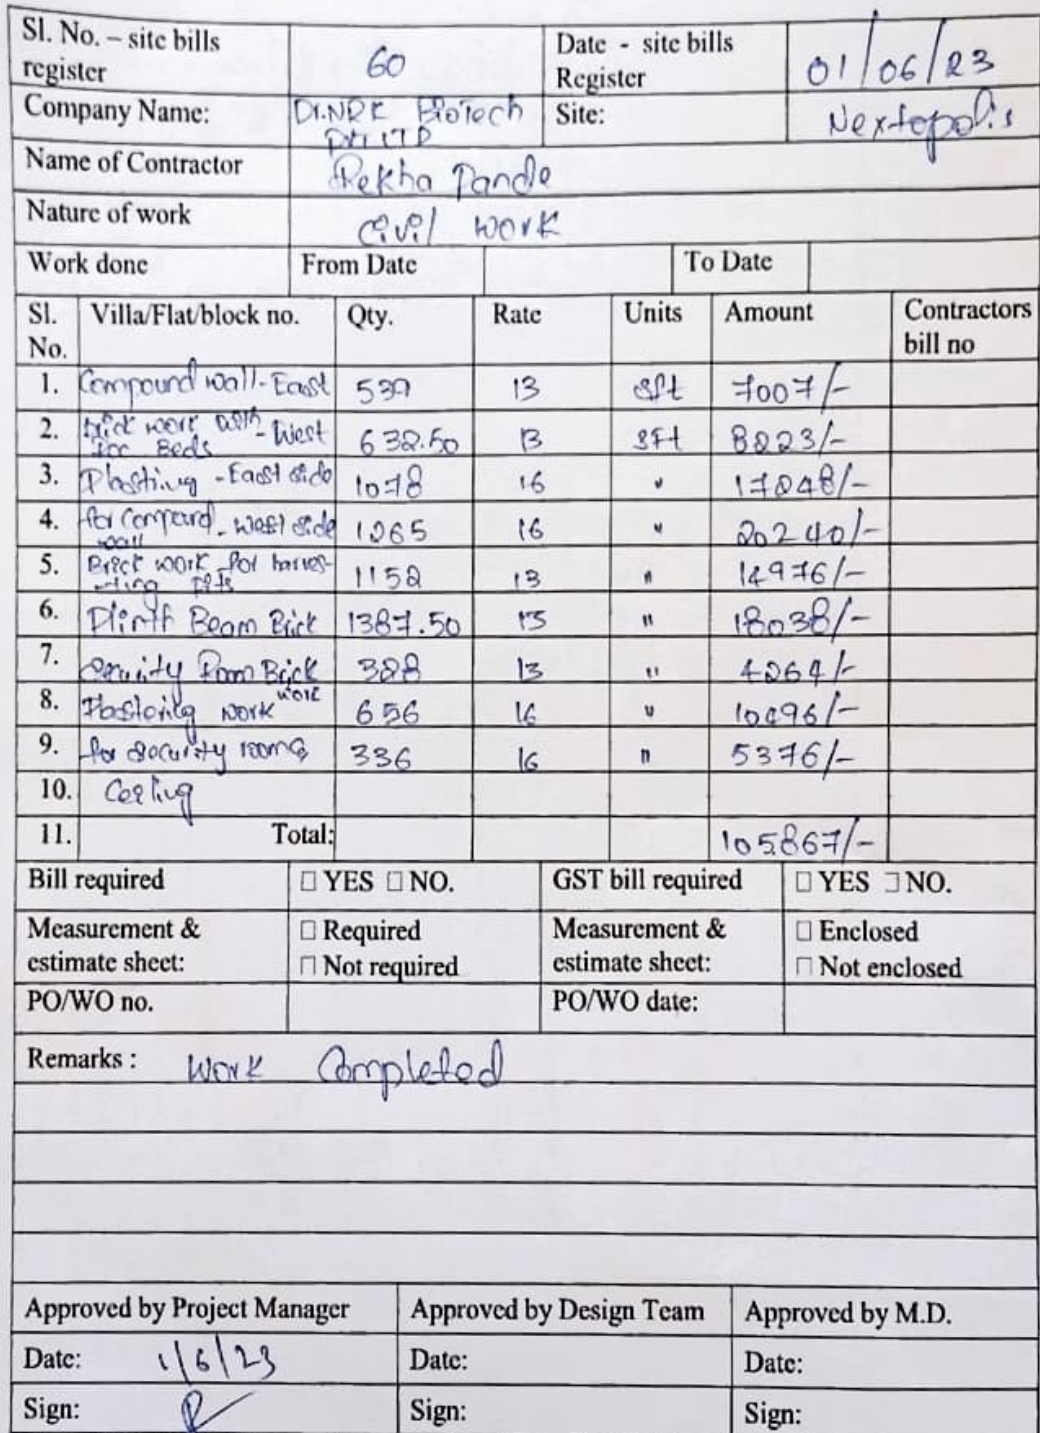 Sl. No. – site bills register 60 Date - site bills Register 01/06/23
Company Name: Dr.NRK BioTech Pvt LTD Site: Nextopolis
Name of Contractor Rekha Pande
Nature of work Civil work
Work done From Date To Date
Sl. No. Villa/Flat/block no. Qty. Rate Units Amount Contractors bill no
1. Compound wall-East 539 13 Sft 7007/-
2. Brick work with - West Beds 632.50 13 SFt 8223/-
3. Plasting - East side 1078 16 " 17248/-
4. for Compound wall - west side 1265 16 " 20240/-
5. Brick work for harves-ting pits 1152 13 " 14976/-
6. Plinth Beam Brick 1387.50 13 " 18038/-
7. Security Room Brick work 328 13 " 4264/-
8. Plastering work 656 16 " 10496/-
9. for security rooms 336 16 " 5376/-
10. Ceeling
11. Total: 105867/-
Bill required □ YES □ NO. GST bill required □ YES □ NO.
Measurement & estimate sheet: □ Required □ Not required Measurement & estimate sheet: □ Enclosed □ Not enclosed
PO/WO no. PO/WO date:
Remarks : Work Completed
Approved by Project Manager Approved by Design Team Approved by M.D.
Date: 1/6/23 Date: Date:
Sign: Sign: Sign: